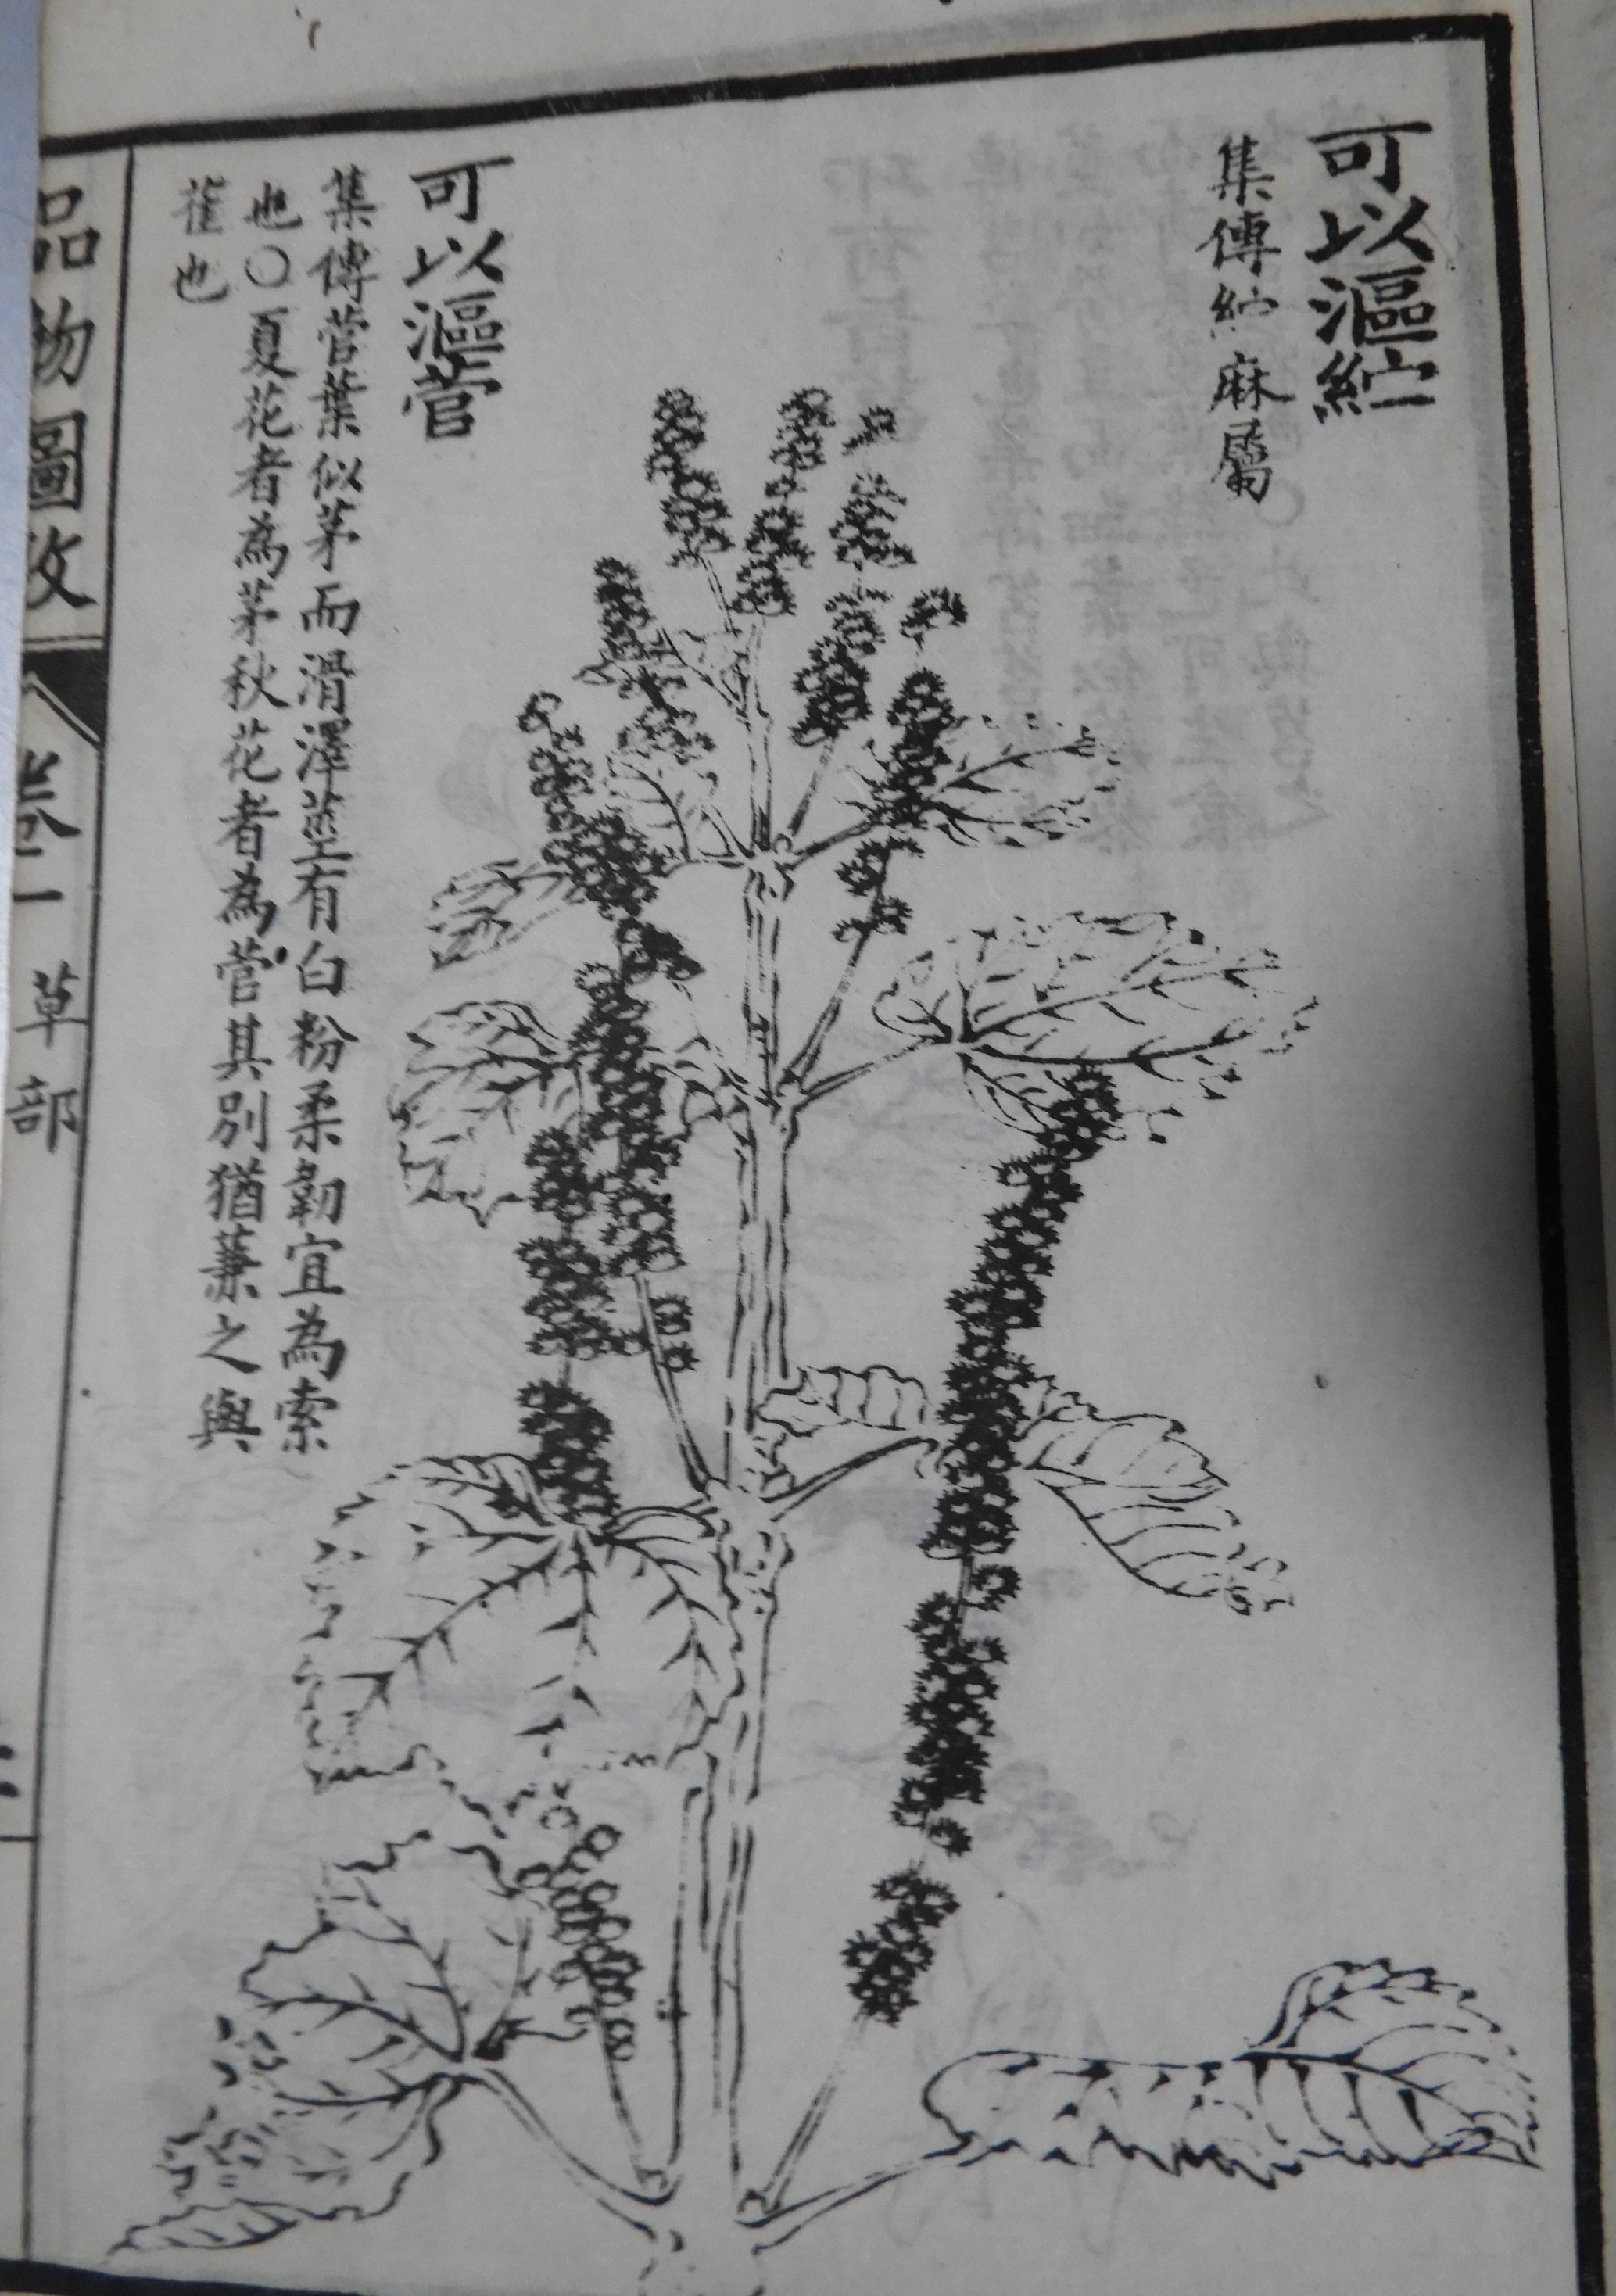 可以漚紵
集傳紵麻屬
可以漚菅
集傳菅葉似茅而滑澤莖有白粉柔韌宜為索
也〇夏花者為茅秋花者為菅其別猶蒹之與
萑也
品物圖攷
卷一
草部